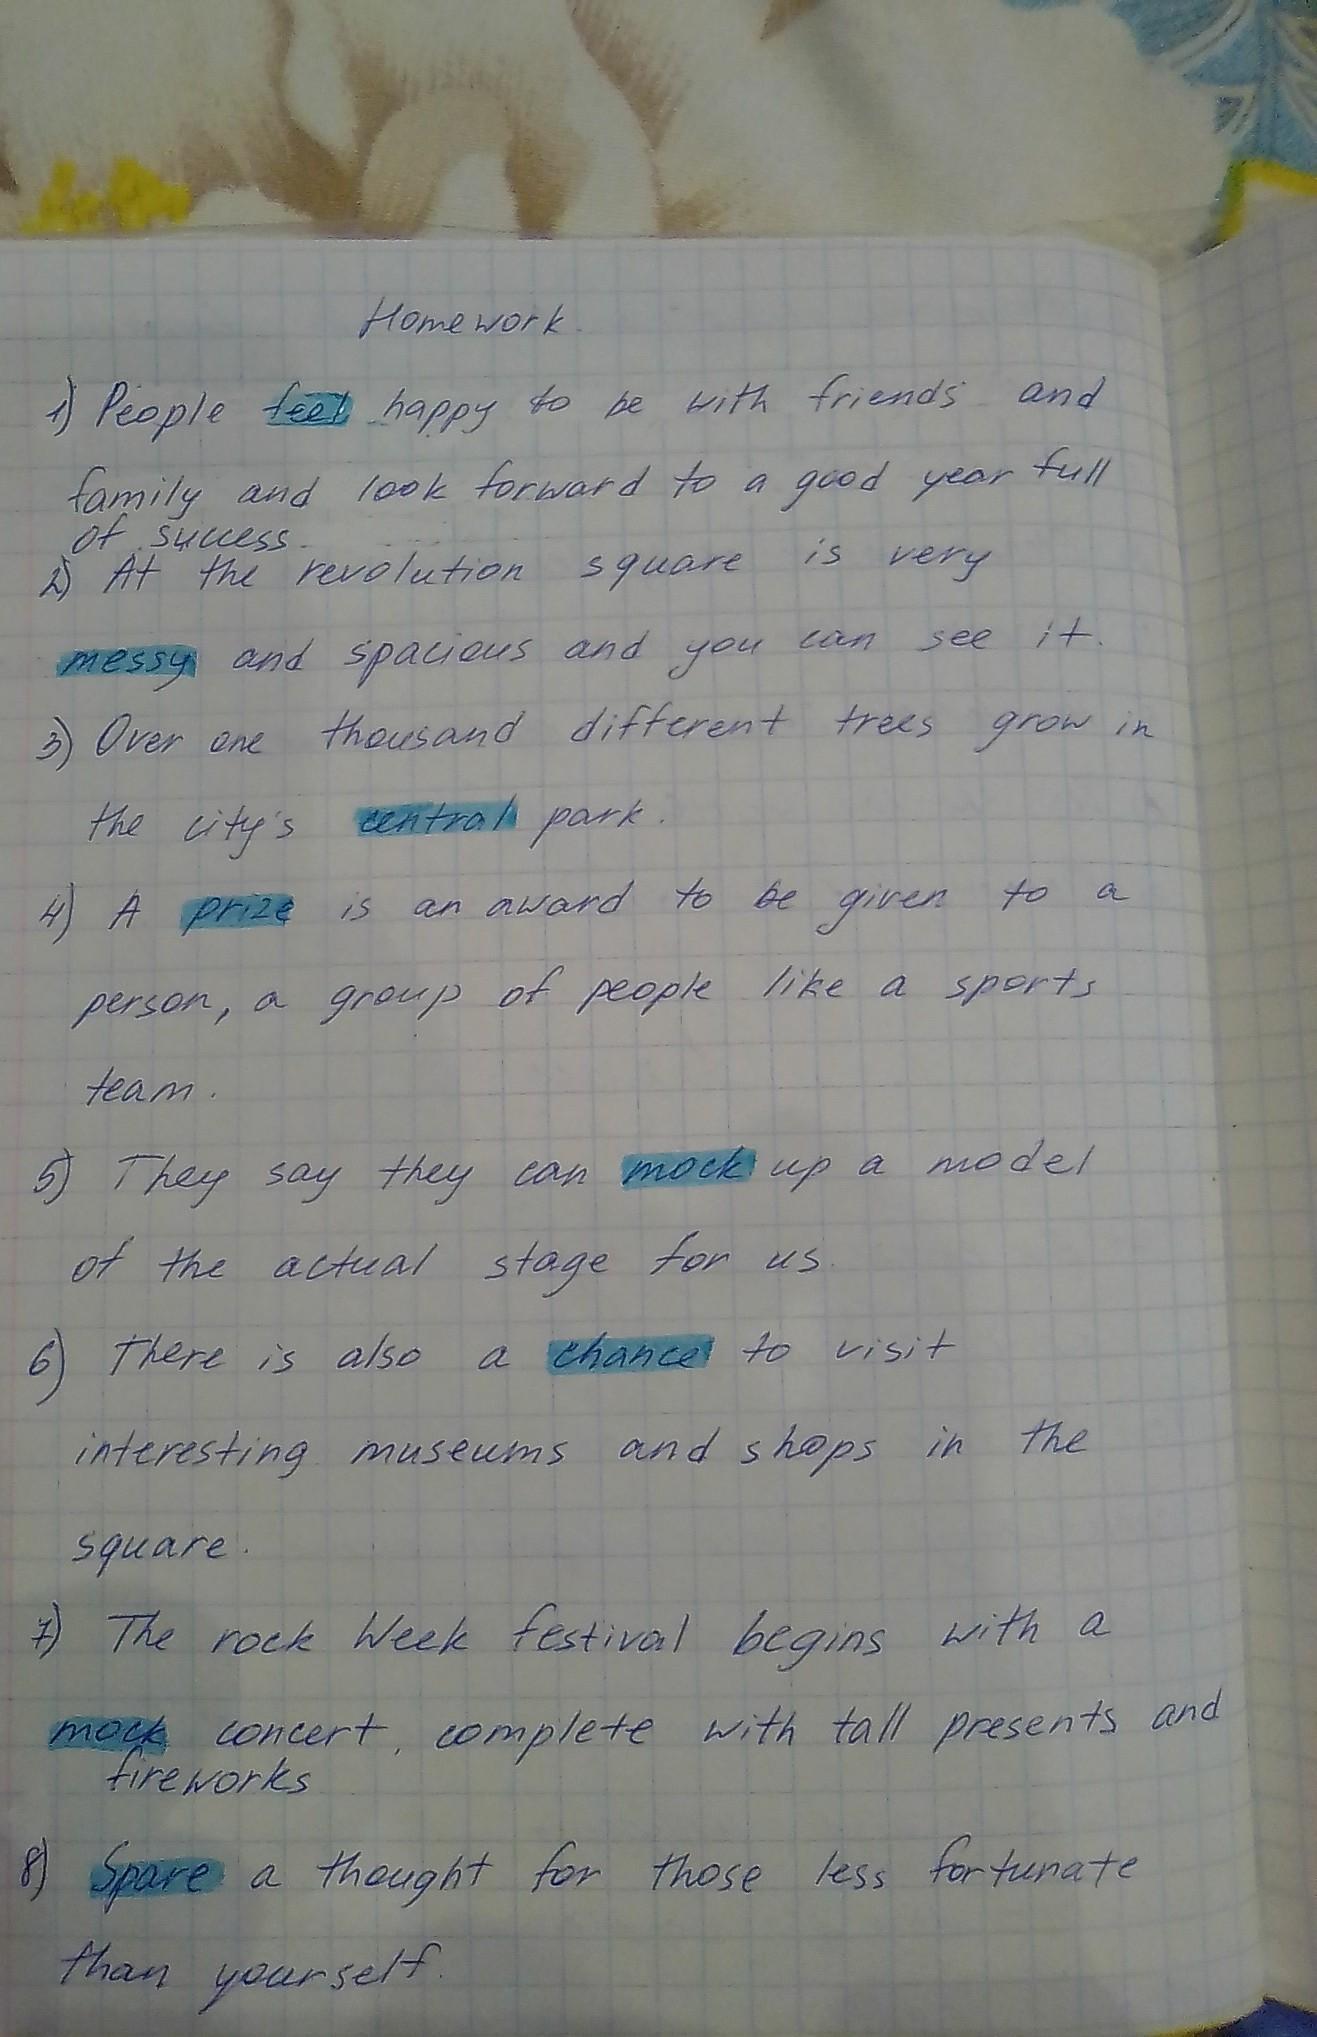 Homework.
1) People feel happy to be with friends and
family and look forward to a good year full
of success.
2) At the revolution square is very
messy and spacious and you can see it.
3) Over one thousand different trees grow in
the city's central park.
4) A prize is an award to be given to a
person, a group of people like a sports
team.
5) They say they can mock up a model
of the actual stage for us.
6) There is also a chance to visit
interesting museums and shops in the
square.
7) The rock Week festival begins with a
mock concert, complete with tall presents and
fireworks
8) Spare a thought for those less fortunate
than yourself.